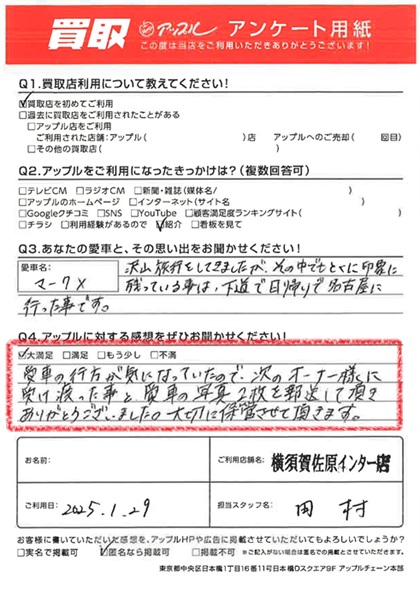 買取 アップル アンケート用紙
この度は当店をご利用いただきありがとうございます!
Q1.買取店利用について教えてください!
☑買取店を初めてご利用
□過去に買取店をご利用されたことがある
□アップル店をご利用
ご利用された店舗:アップル( )店 アップルへのご売却( 回目)
□その他の買取店( )
Q2.アップルをご利用になったきっかけは?(複数回答可)
□テレビCM □ラジオCM □新聞・雑誌(媒体名/ )
□アップルのホームページ □インターネット(サイト名 )
□Googleクチコミ □SNS □YouTube □顧客満足度ランキングサイト( )
□チラシ □利用経験があるので ☑紹介 □看板を見て
Q3.あなたの愛車と、その思い出をお聞かせください!
愛車名: マークX
沢山旅行をしてきましたが、その中でもとくに印象に
残っている事は、下道で日帰りで名古屋に
行った事です。
Q4.アップルに対する感想をぜひお聞かせください!
☑大満足 □満足 □もう少し □不満
愛車の行方が気になっていたので、次のオーナー様に
受け渡った事と、愛車の写真2枚を郵送して頂き
ありがとうございました。大切に保管させて頂きます。
お名前:
ご利用店舗名: 横須賀佐原インター店
ご利用日: 2025.1.29
担当スタッフ名: 田村
お客様に書いていただいた感想を、アップルHPや広告に掲載させていただいてもよろしいでしょうか?
□実名で掲載可 ☑匿名なら掲載可 □掲載不可 ※ご記入がない場合は匿名での掲載とさせていただきます。
東京都中央区日本橋1丁目16番11号日本橋Dスクエア9F アップルチェーン本部